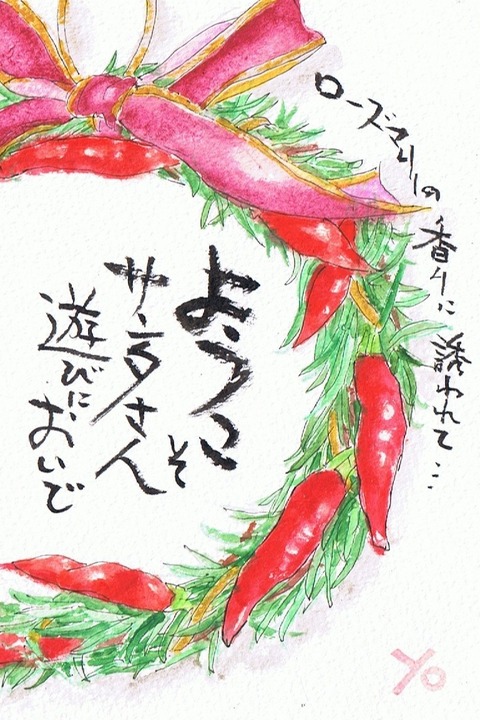 ローズマリーの香りに誘われて…
ようこそ
サンタさん
遊びにおいで
Yo